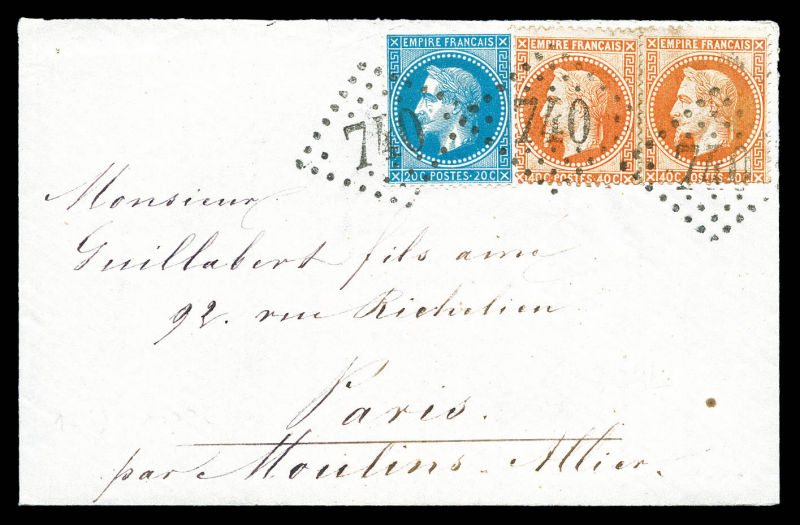 EMPIRE FRANÇAIS EMPIRE FRANÇAIS EMPIRE FRANÇAIS
740 740 740
20C POSTES 20C 40C POSTES 40C 40C POSTES 40C
Monsieur
Guillabert fils ainé
92. rue Richelieu
Paris.
par Moulins-Allier.